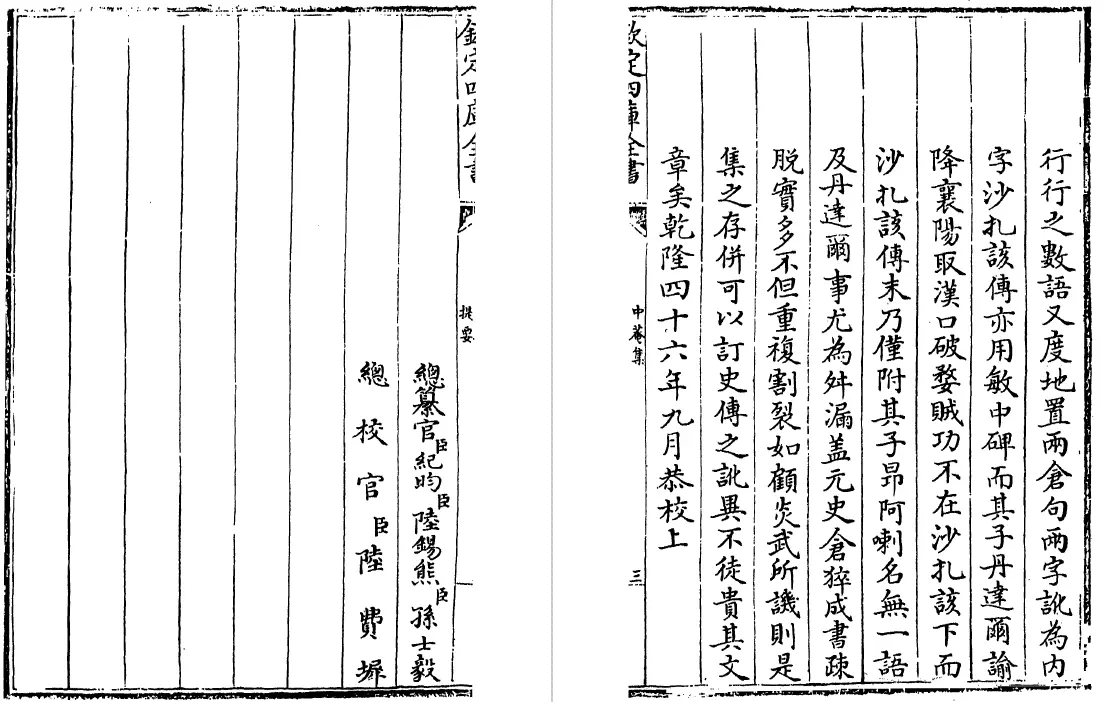 行行之數語又度地置兩倉句兩字訛為内
字沙扎該傳亦用敏中碑而其子丹達爾諭
降襄陽取漢口破婺賊功不在沙扎該下而
沙扎該傳末乃僅附其子昻阿喇名無一語
及丹達爾事尤為舛漏盖元史倉猝成書疎
脱實多不但重複割裂如顧炎武所譏則是
集之存併可以訂史傳之訛異不徒貴其文
章矣乾隆四十六年九月恭校上
欽定四庫全書
中菴集
三
欽定四庫全書
提要
總纂官臣紀昀臣陸錫熊臣孫士毅
總校官臣陸費墀